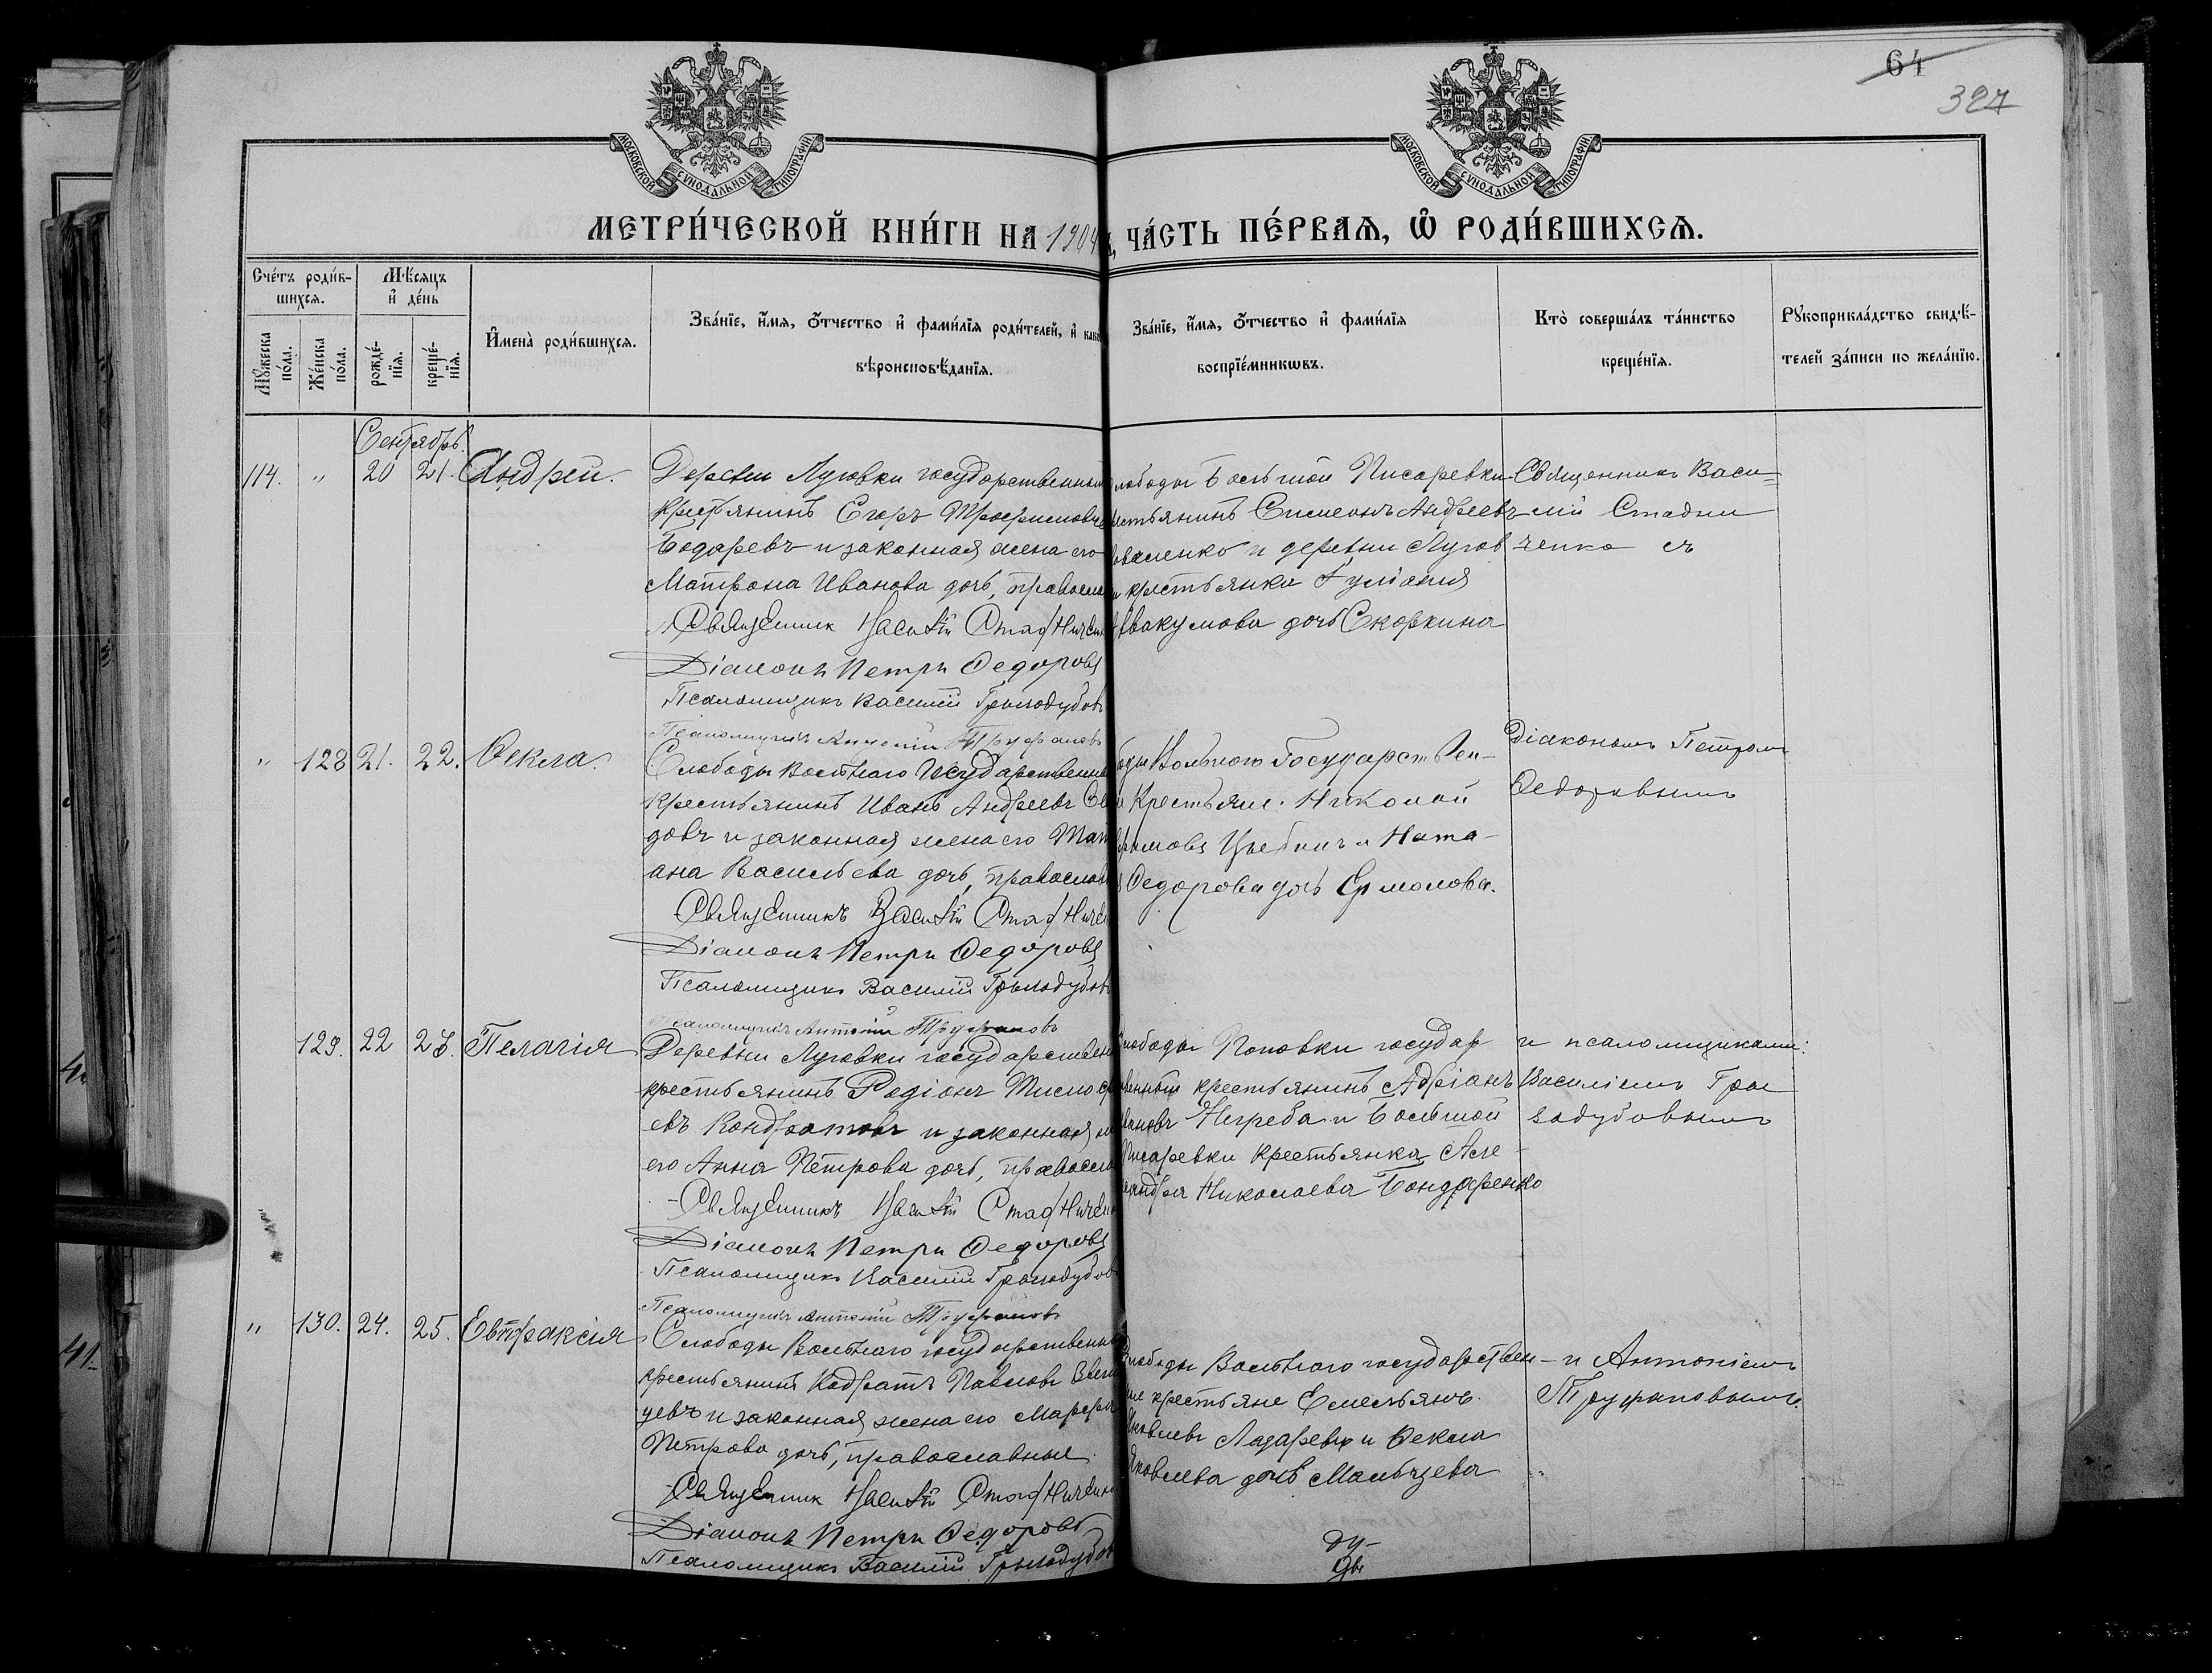 64
327
МОСКОВСКОЙ СУНОДАЛЬНОЙ ТИПОГРАФІИ
МОСКОВСКОЙ СУНОДАЛЬНОЙ ТИПОГРАФІИ
МЕТРИ́ЧЕСКОЙ КНИ́ГИ НА 1904 ЧА́СТЬ ПЕ́РВАѦ, Ѽ РОДИ́ВШИХСѦ.
Сче́тъ роди́в-
шихсѧ.
Мѣ́сѧцъ
и҆ де́нь
Мꙋ́жеска
по́ла.
Же́нска
по́ла.
рожде́-
нїѧ.
креще́-
нїѧ.
И҆мена̀ роди́вшихсѧ.
Зва́нїе, и҆́мѧ, ѻ҆́тчество и҆ фами́лїѧ роди́телей, и҆ како
вѣроисповѣ́данїѧ.
Зва́нїе, и҆́мѧ, ѻ҆́тчество и҆ фами́лїѧ
воспрїе́мникѡвъ.
Кто̀ соверша́лъ та́инство
креще́нїѧ.
Рꙋкоприкла́дство свидѣ́-
телей за́писи по жела́нїю.
Сентябрь.
114. " 20 21. Андрей.
Деревни Луговки государственный
крестьянинъ Егоръ Трофимовичъ
Бодаревъ и законная жена его
Матрона Иванова дочь, правосла
Священник Василій
Діаконъ Петръ Федоровъ
Псаломщикъ Василій Грызодубовъ
Псаломщикъ Антоній Труфановъ
лободы Большой Писаревки
стьянинъ Симеонъ Андреевъ
оваленко и деревни Лугов
и крестьянка Іуліанія
Аввакумова дочь Скоркина
Священникъ Васи-
лій Стадни
ченко съ
" 128 21. 22. Ѳекла.
Слободы Вольнаго Государственный
Крестьянинъ Иванъ Андреевъ
довъ и законная жена его Тать
ана Васильева дочь, православ
Священникъ Василій
Діаконъ Петръ Федоровъ
Псаломщикъ Василій Грызодубовъ
Псаломщикъ Антоній Труфановъ
оды Вольного Государствен-
и Крестьяне: Николай
и Ната-
Федорова дочь Ермолова.
Діакономъ Петромъ
Ѳедоровымъ
129. 22 23. Пелагія
Деревни Луговки государствен
крестьянинъ Родіонъ Тимоф
евъ Кондратовъ и законная ж
его Анна Петрова дочь, правосла
Священникъ Василій
Діаконъ Петръ Федоровъ
Псаломщикъ Василій Грызодубов
Псаломщикъ Антоній Труфановъ
лободы Поповки государ
венный крестьянинъ Адріанъ
вановъ Негреба и Большой
Писаревки крестьянка Але-
андра Николаева Бондаренко
и псаломщиками:
Василіемъ Гры
зодубовымъ
" 130. 24. 25. Евпраксія
Слободы Вольнаго государственный
крестьянинъ Кодратъ Павловъ
цевъ и законная жена его Марфа
Петрова дочь, православные.
Священник Василій
Діаконъ Петръ Федоровъ
Псаломщикъ Василій Грызодубов
Слободы Вольнаго государствен-
ые крестьяне Емельянъ
Яковлевъ Лазаревъ и Ѳекла
Яковлева дочь Мальцева
и Антоніемъ
Труфановымъ.
41